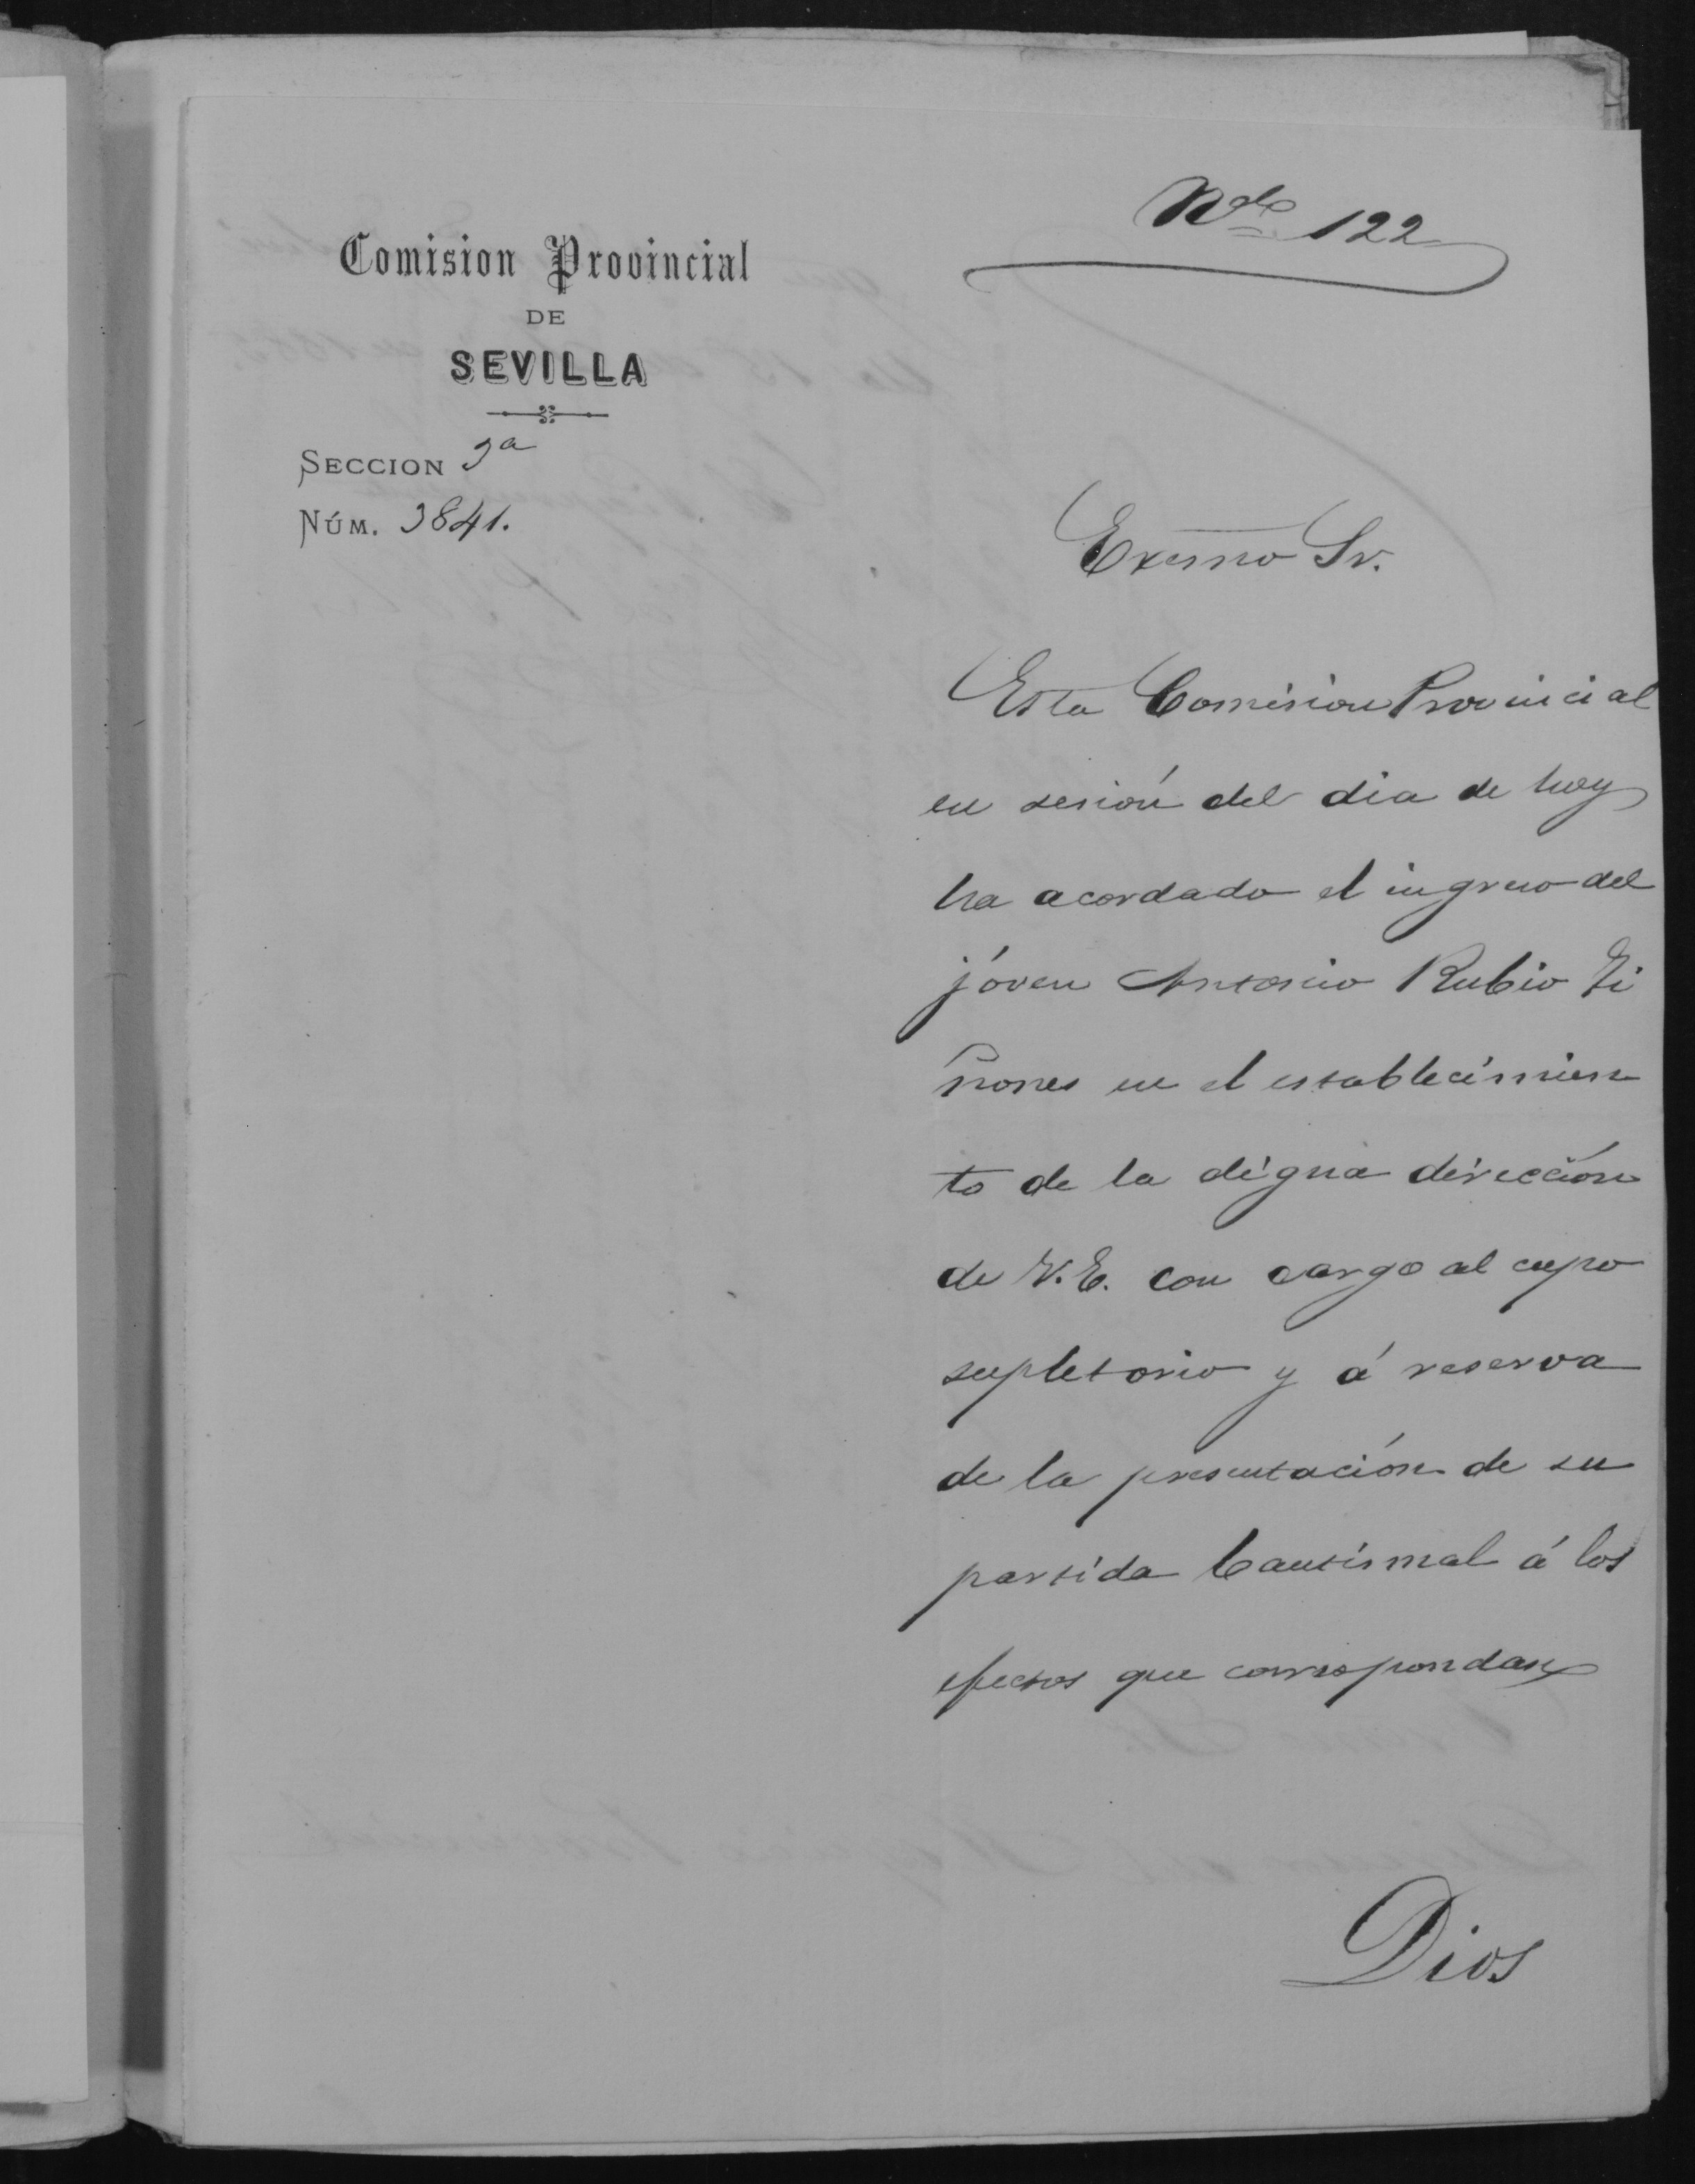 Rdo 122
Comision Provincial
DE
SEVILLA
SECCION 3a
NÚM. 3841.
Excmo Sr.
Esta Comision Provincial
en sesión del dia de hoy
ha acordado el ingreso del
jóven Antonio Rubio
ñones en el establecimien
to de la digna dirección
de V.E. con cargo al cupo
supletorio y á reserva
de la presentación de su
partida bautismal á los
efectos que correspondan
Dios